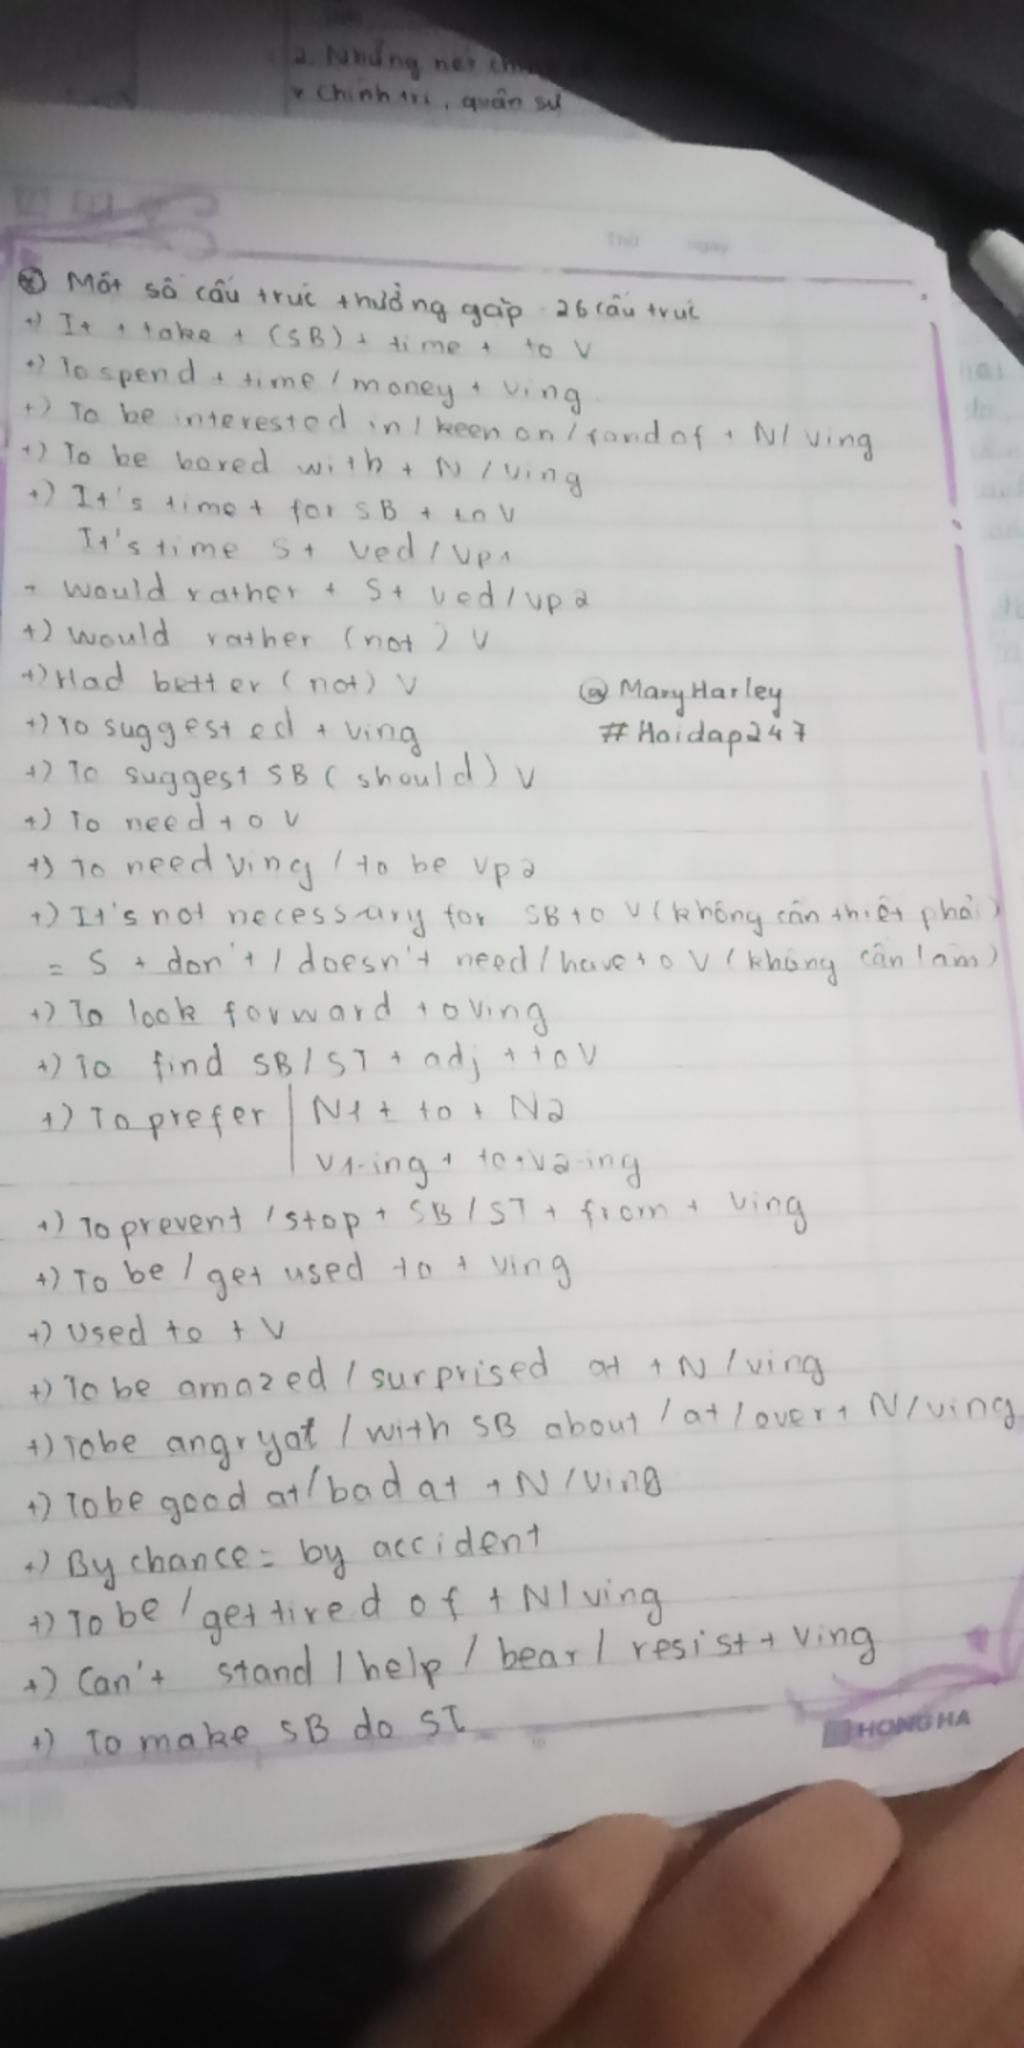 2. Những nét
* Chính trị, quân sự
Thứ ngày
⊛ Một số cấu trúc thường gặp 26 cấu trúc
+) It + take + (SB) + time + to V
+) To spend + time / money + Ving
+) To be interested in / keen on / fond of + N/ Ving
+) To be bored with + N / Ving
+) It's time + for SB + to V
It's time S + Ved / Vp1
- Would rather + S + Ved / Vp2
+) Would rather (not) V
+) Had better (not) V
@ Mary Harley
+) To suggested + Ving
# Hoidap247
+) To suggest SB (should) V
+) To need to V
+) To need Ving / to be Vp2
+) It's not necessary for SB to V (không cần thiết phải)
= S + don't / doesn't need / have to V (không cần làm)
+) To look forward to Ving
+) To find SB / ST + adj + to V
+) To prefer | N1 + to + N2
V1-ing + to + V2-ing
+) To prevent / stop + SB / ST + from + Ving
+) To be / get used to + Ving
+) Used to + V
+) To be amazed / surprised at + N / Ving
+) To be angry at / with SB about / at / over + N / Ving
+) To be good at / bad at + N / Ving
+) By chance = by accident
+) To be / get tired of + N / Ving
+) Can't stand / help / bear / resist + Ving
+) To make SB do ST
HONG HA